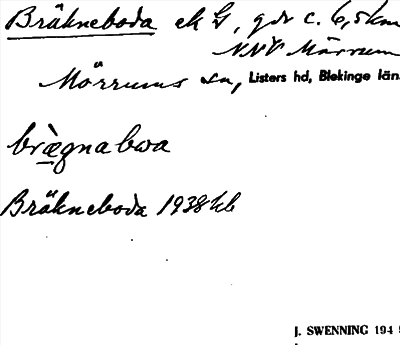 Bräkneboda ek G, gdr c. 6,5 km
NNV Mörrum
Mörrums sn, Listers hd, Blekinge län.
brægnabωa
Bräkneboda 1938 kb
J. SWENNING 194